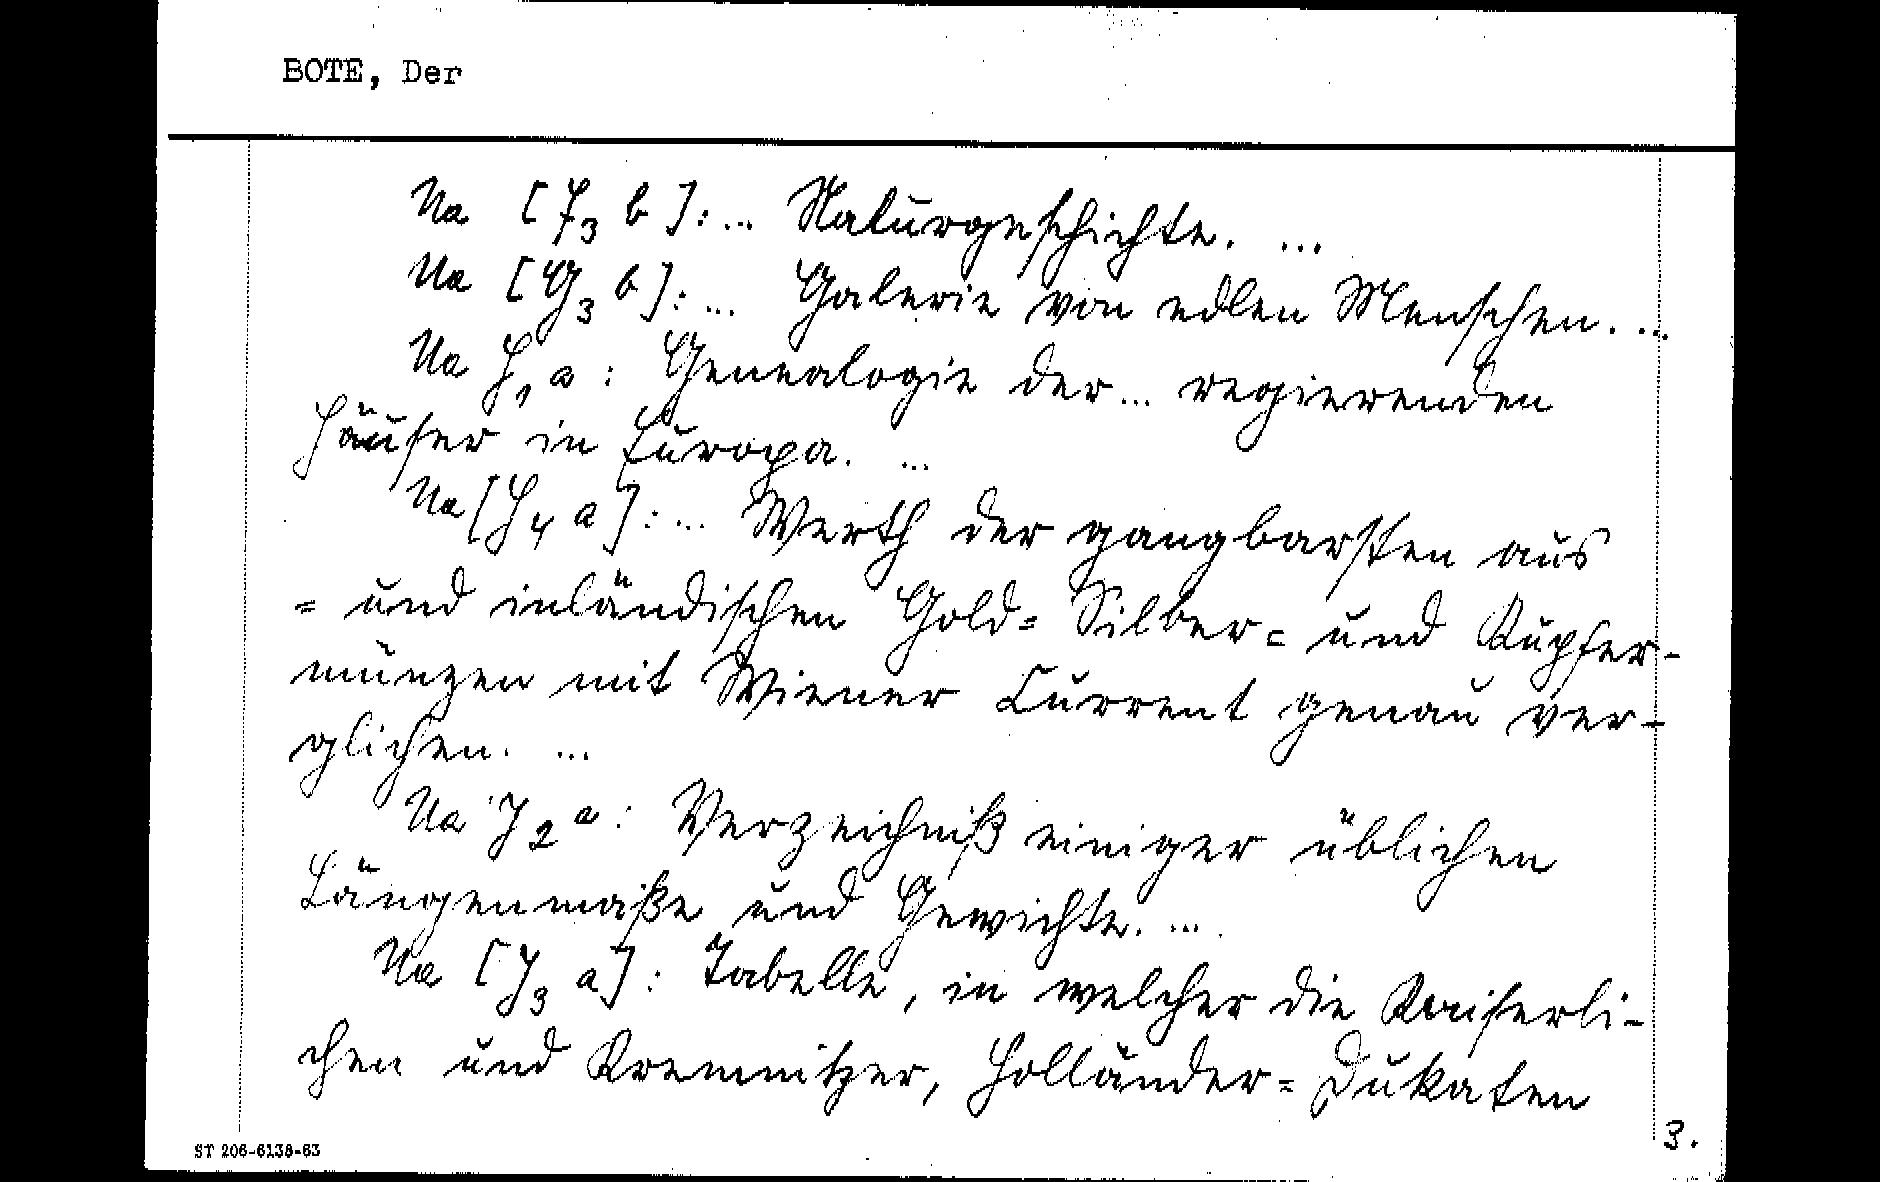 BOTE, Der
Ua [F₃ b]: ... Naturgeschichte. ...
Ua [G₃ b]: ... Galerie von edlen Menschen. ...
Ua H₁ a : Genealogie der ... regierenden
Häuser in Europa. ...
Ua [H₄ a]: ... Werth der gangbarsten aus
= und inländischen Gold= Silber= und Kupfer-
münzen mit Wiener Current genau ver-
glichen. ...
Ua J₂ a : Verzeichniß einiger üblichen
Längenmaße und Gewichte. ...
Ua [J₃ a]: Tabelle, in welcher die Kaiserli-
chen und Kremnitzer, Holländer=Dukaten
ST 206-6138-63
3.